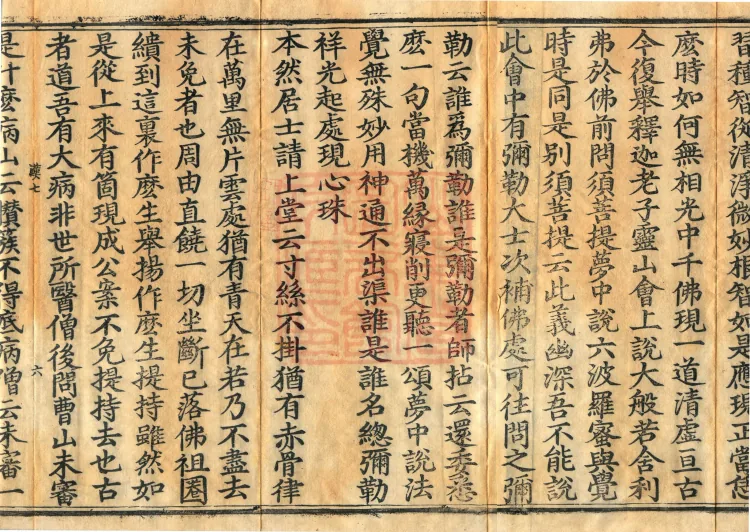 習種知從清淨微妙相智如是應現正當恁
麼時如何無相光中千佛現一道清虛亘古
今復舉釋迦老子靈山會上說大般若舍利
弗於佛前問須菩提夢中說六波羅蜜與覺
時是同是別須菩提云此義幽深吾不能說
此會中有彌勒大士次補佛處可往問之彌
勒云誰爲彌勒誰是彌勒者師拈云還委悉
麽一句當機萬緣寢削更聽一頌夢中說法
覺無殊妙用神通不出渠誰是誰名總彌勒
祥光起處現心珠
本然居士請上堂云寸絲不掛猶有赤骨律
在萬里無片雲處猶有青天在若乃不盡去
未免者也周由直饒一切坐斷已落佛祖圈
繢到這裏作麽生舉揚作麽生提持雖然如
是從上來有箇現成公案不免提持去也古
者道吾有大病非世所醫僧後問曹山未審
七 六
是什麽病山云攢蔟不得底病僧云未審一